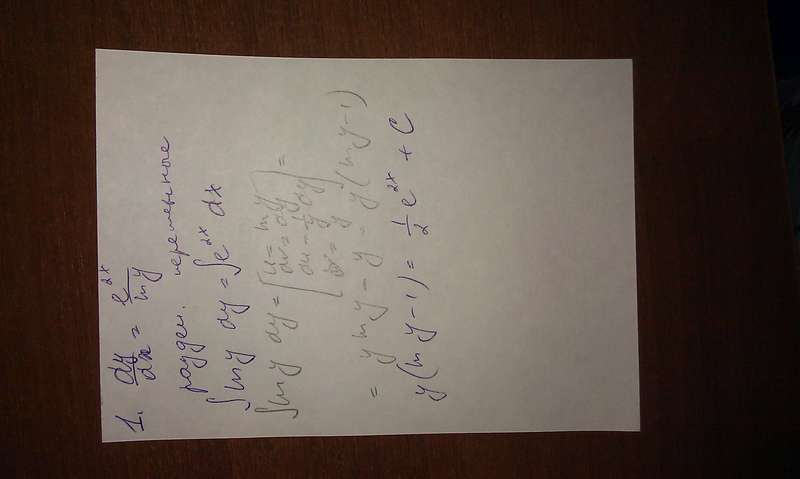 1. dy/dx = e^2x/ln y
раздел. переменные
∫ln y dy = ∫e^2x dx
∫ln y dy = [u = ln y dv = dy du = 1/y dy v = y] =
= y ln y - y = y(ln y - 1)
y(ln y - 1) = 1/2 e^2x + C